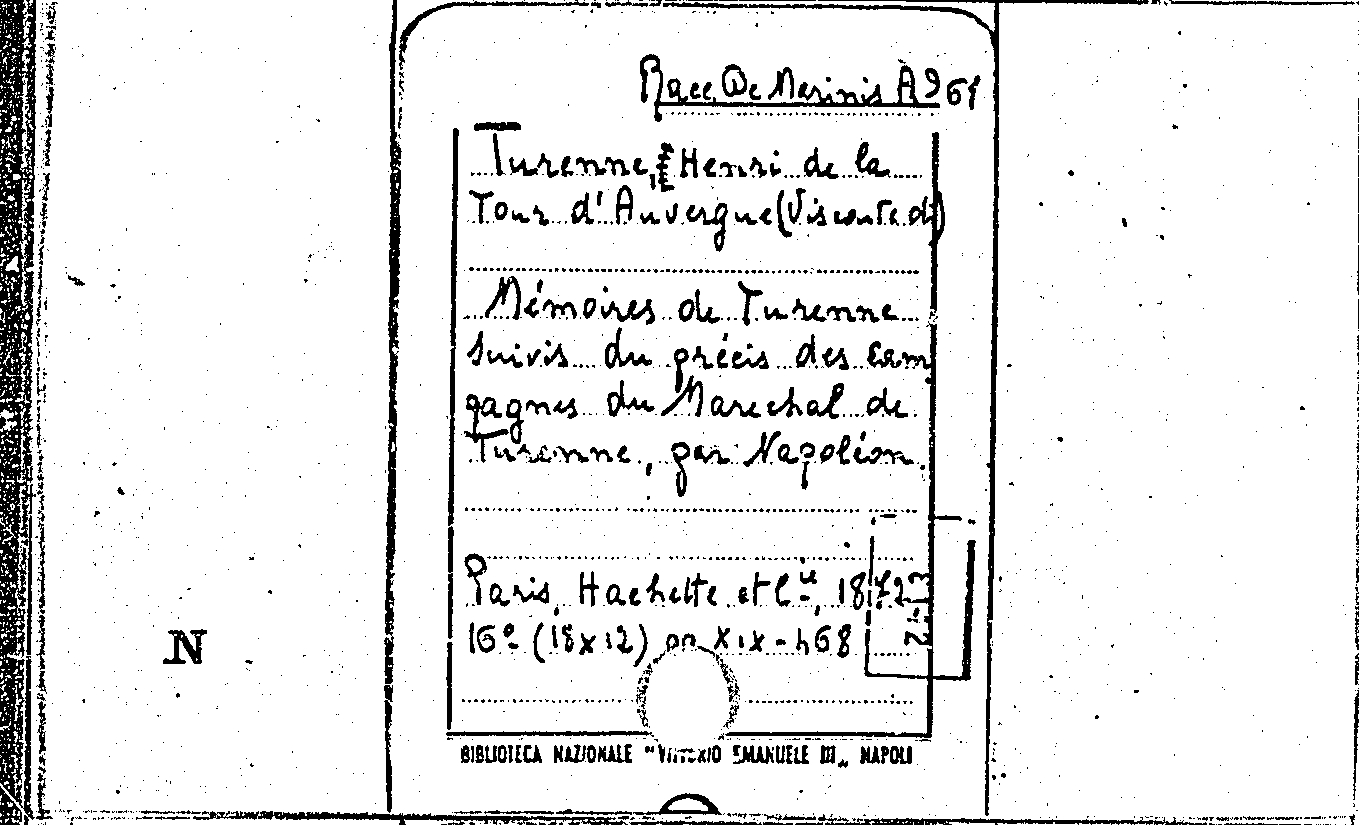 Racc. De Marinis A 961
Turenne, Henri de la
Tour d'Auvergue (Visconte di)
Mémoires de Turenne
suivis du précis des cam
pagnes du Marechal de
Turenne, par Napoléon.
Paris, Hachette et C.ie, 1872
16º (18x12) pp XIX-468
N
BIBLIOTECA NAZIONALE "VITTORIO EMANUELE III" NAPOLI